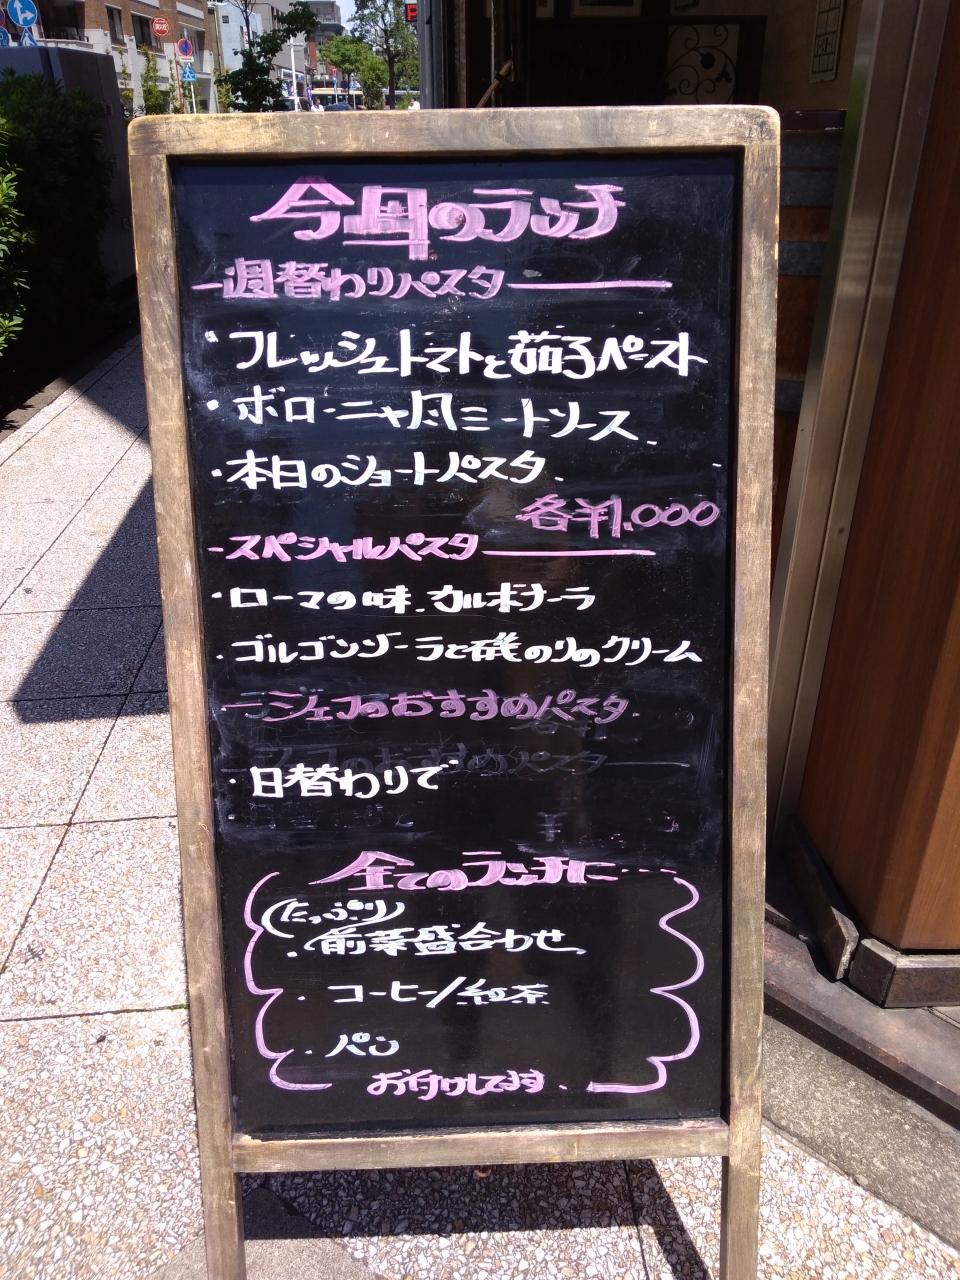 今月のランチ
週替わりパスタ
・フレッシュトマトと茄子ペースト
・ボローニャ風ミートソース
・本日のショートパスタ
各¥1.000
スペシャルパスタ
・ローマの味 カルボナーラ
・ゴルゴンゾーラと磯のりのクリーム
シェフのおすすめパスタ
・日替わりで
全てのランチに…
たっぷり
・前菜盛合わせ
・コーヒー/紅茶
・パン
お付けしてます